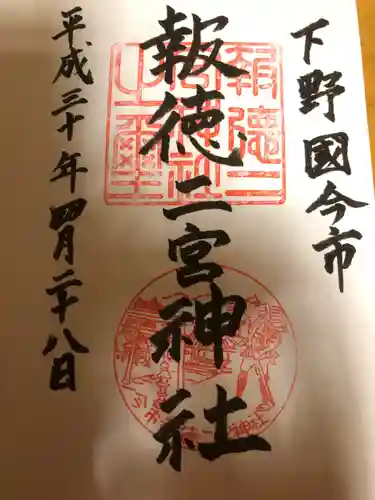 下野國今市
報徳二宮神社
平成三十年四月二十八日